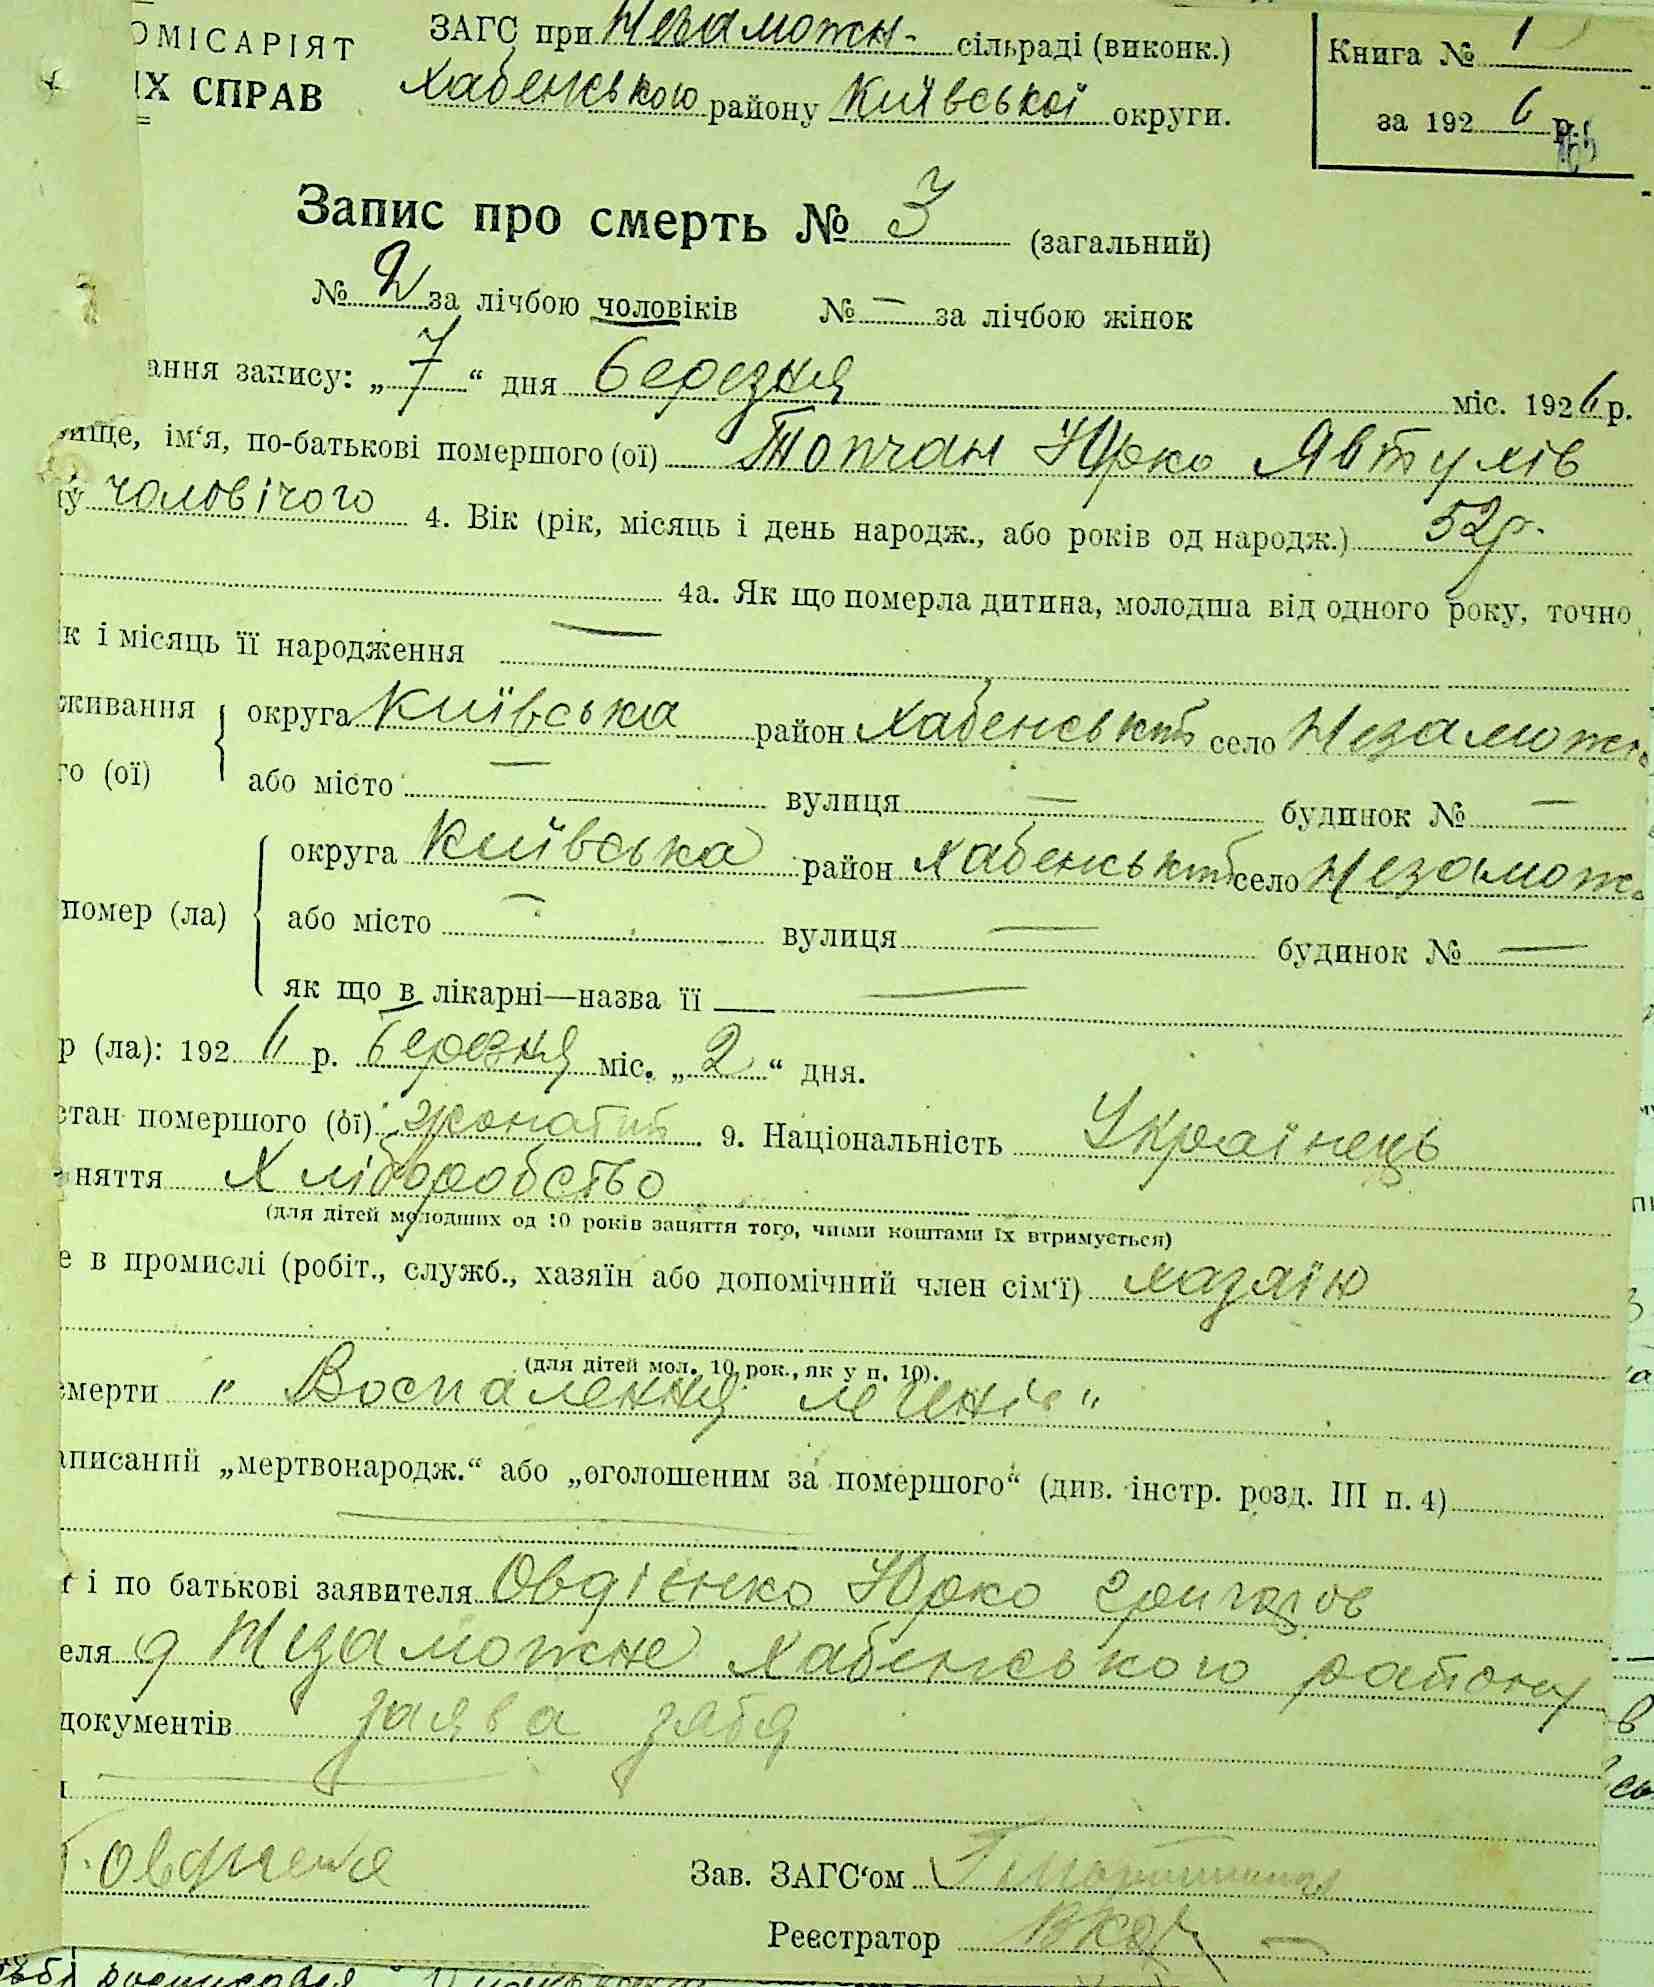 ОМІСАРІЯТ
ИХ СПРАВ
ЗАГС при Незаможн- сільраді (виконк.)
Хабенського району Київської округи.
Книга № 1
за 1926 р.
Запис про смерть № 3 (загальний)
№ 2 за лічбою чоловіків № — за лічбою жінок
ання запису: „7“ дня березня міс. 1926 р.
вище, ім‘я, по-батькові помершого (ої) Топчан Юрко Явтухів
чоловічого 4. Вік (рік, місяць і день народж., або років од народж.) 52 р.
4а. Як що померла дитина, молодша від одного року, точно
к і місяць її народження —
живання округа Київська район Хабенський село Незаможн
го (ої) або місто — вулиця — будинок № —
округа Київська район Хабенський село Незамож
помер (ла) або місто — вулиця — будинок № —
як що в лікарні—назва її —
р (ла): 1926 р. березня міс. „2“ дня.
стан помершого (ої) жонатий 9. Національність Українець
няття Хліборобство
(для дітей молодших од 10 років заняття того, чиїми коштами їх втримується)
е в промислі (робіт., служб., хазяїн або допомічний член сім‘ї) хазяїн
(для дітей мол. 10 рок., як у п. 10).
смерти „Воспалення легенів“
аписаний „мертвонародж.“ або „оголошеним за помершого“ (див. інстр. розд. III п. 4)
—
і по батькові заявителя Овдієнко Юрко Григоров
еля с Незаможне Хабенського району
документів заява
Зав. ЗАГС‘ом
Реєстратор